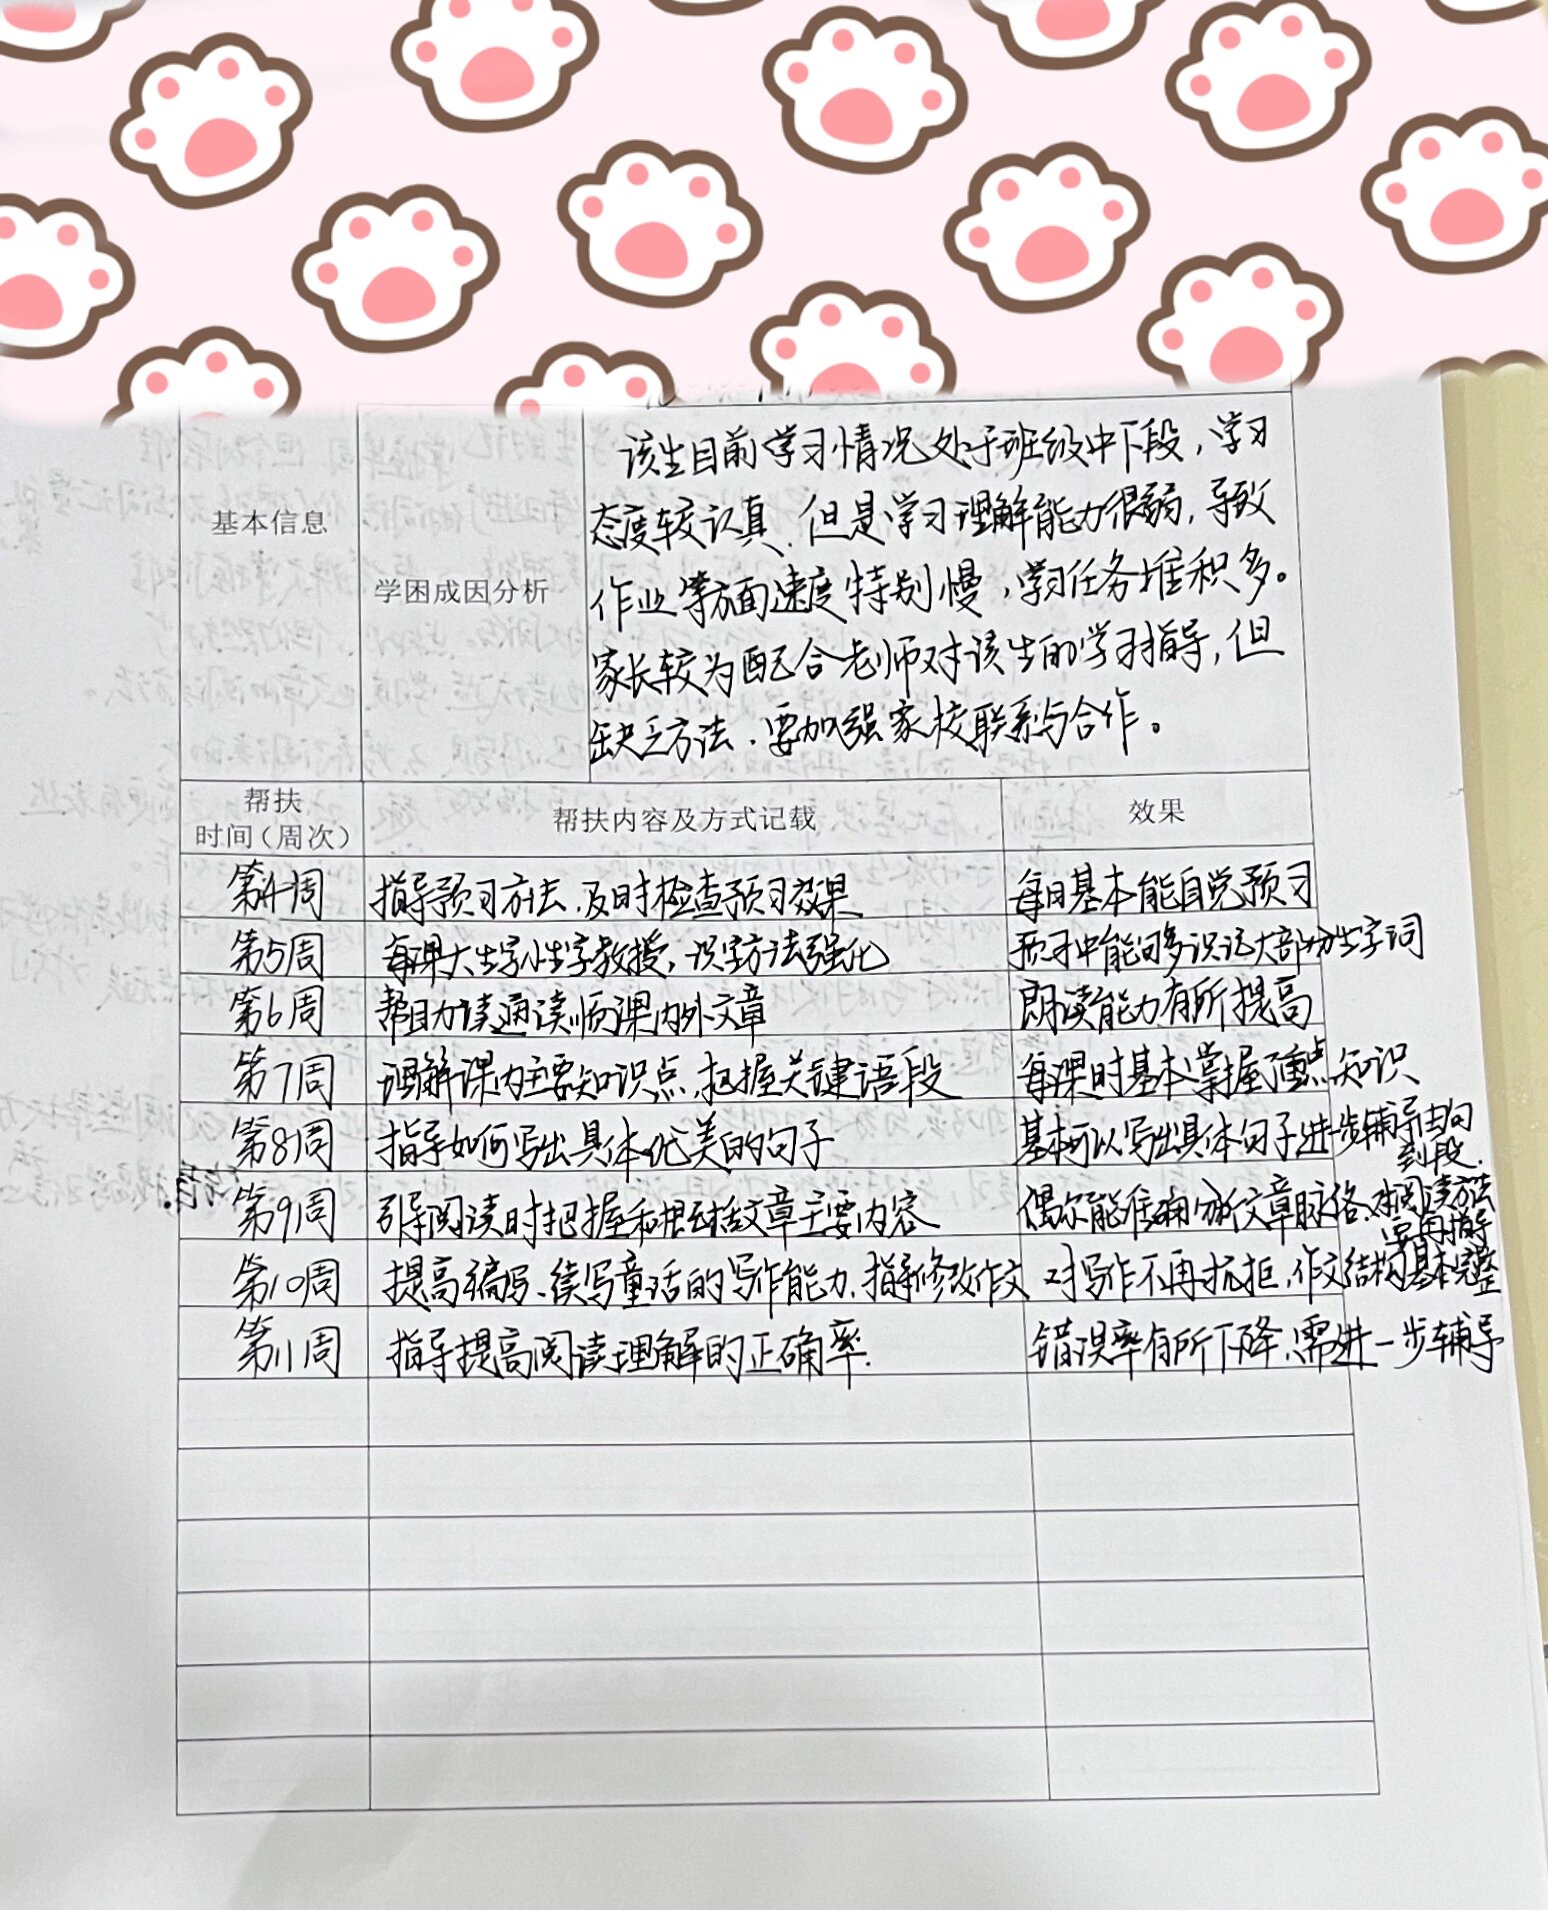 该生目前学习情况处于班级中下段，学习
态度较认真，但是学习理解能力很弱，导致
基本信息
学困成因分析
作业等方面速度特别慢，学习任务堆积多。
家长较为配合老师对该生的学习指导，但
缺乏方法，要加强家校联系与合作。
帮扶
时间（周次）
帮扶内容及方式记载
效果
第4周 指导预习方法，及时检查预习效果 每日基本能自觉预习
第5周 每课大生字小生字教授，识字方法强化 预习中能够多识记大部分生字词
第6周 帮助读通读顺课内外文章 朗读能力有所提高
第7周 理解课内主要知识点，把握关键语段 每课时基本掌握了重点知识
第8周 指导如何写出具体优美的句子 基本可以写出具体句子进一步辅导由句
到段.
第9周 引导阅读时把握和概括文章主要内容 偶尔能准确分析文章脉络，对阅读方法
要再指导
第10周 提高编写、续写童话的写作能力，指导修改作文 对写作不再抗拒，作文结构基本完整
第11周 指导提高阅读理解的正确率. 错误率有所下降，需进一步辅导